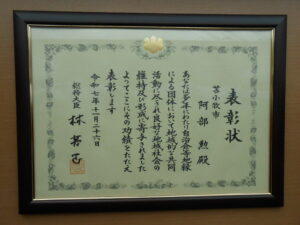 表彰状
苫小牧市
阿部 勲 殿
あなたは多年にわたり自治会等地縁
による団体において地域的な共同
活動に尽くされ良好な地域社会の
維持及び形成に寄与されました
よってここにその功績をたたえ
表彰します
令和七年十一月二十六日
総務大臣
林 芳正